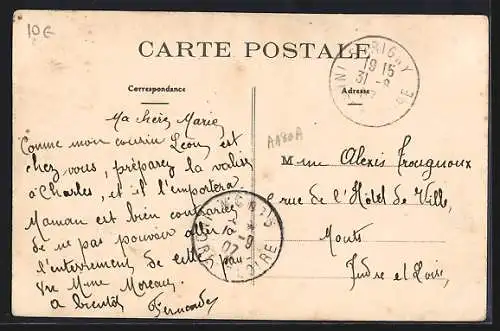 10€
CARTE POSTALE
Correspondance
Adresse
19 15
31 - 8
Ma chère Marie
Comme mon cousin Léon est
chez vous, préparez la valise
à Charles, et il l'emportera
Maman est bien contrariée
de ne pas pouvoir aller à
l'enterrement de cette pau-
vre Mme Moreau.
a bientôt Fernande
Mme Alexis
rue de l'Hôtel de Ville,
Monts
Indre et Loire,